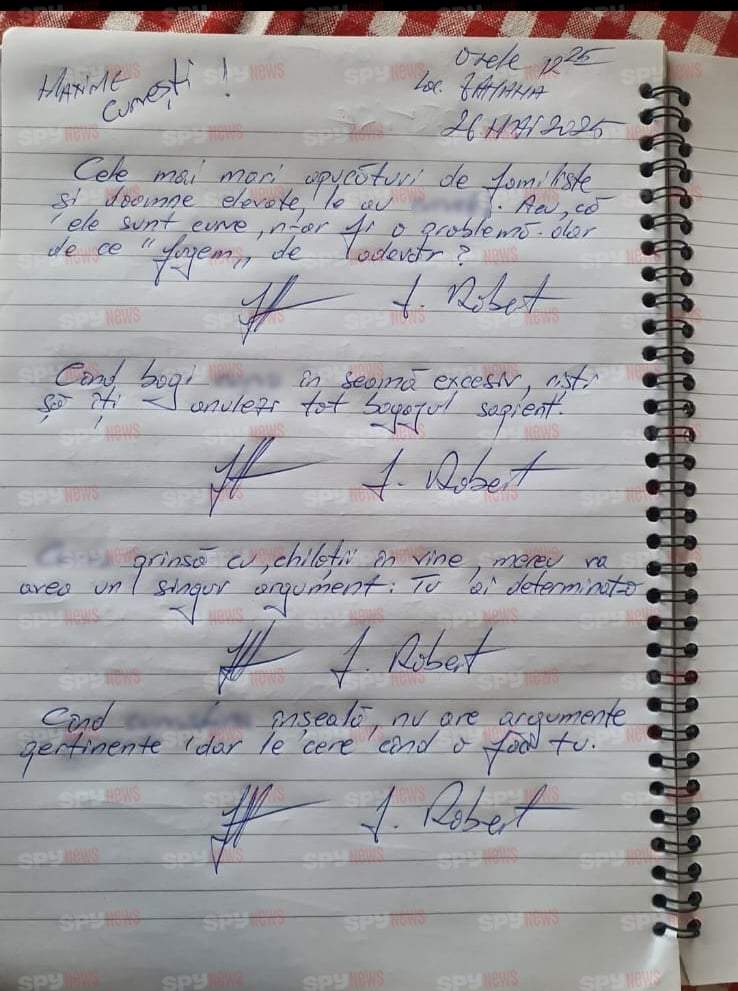 Orele 12²⁵
MAXIME
Loc. TATIANA
curvești !
26 MAI 2025
Cele mai mari apucături de familiste
și doamne elevate, le au. Au, că
ele sunt curve, n-ar fi o problemă. dar
de ce "fugem" de adevăr?
J. Robert
Când bagi în seamă excesiv, riști
să îți anulezi tot bagajul sapient.
J. Robert
prinsă cu chiloții în vine, mereu va
avea un singur argument: Tu ai determinat-o
J. Robert
Când înșeală, nu are argumente
pertinente, dar le cere când o faci tu.
J. Robert
SPY NEWS